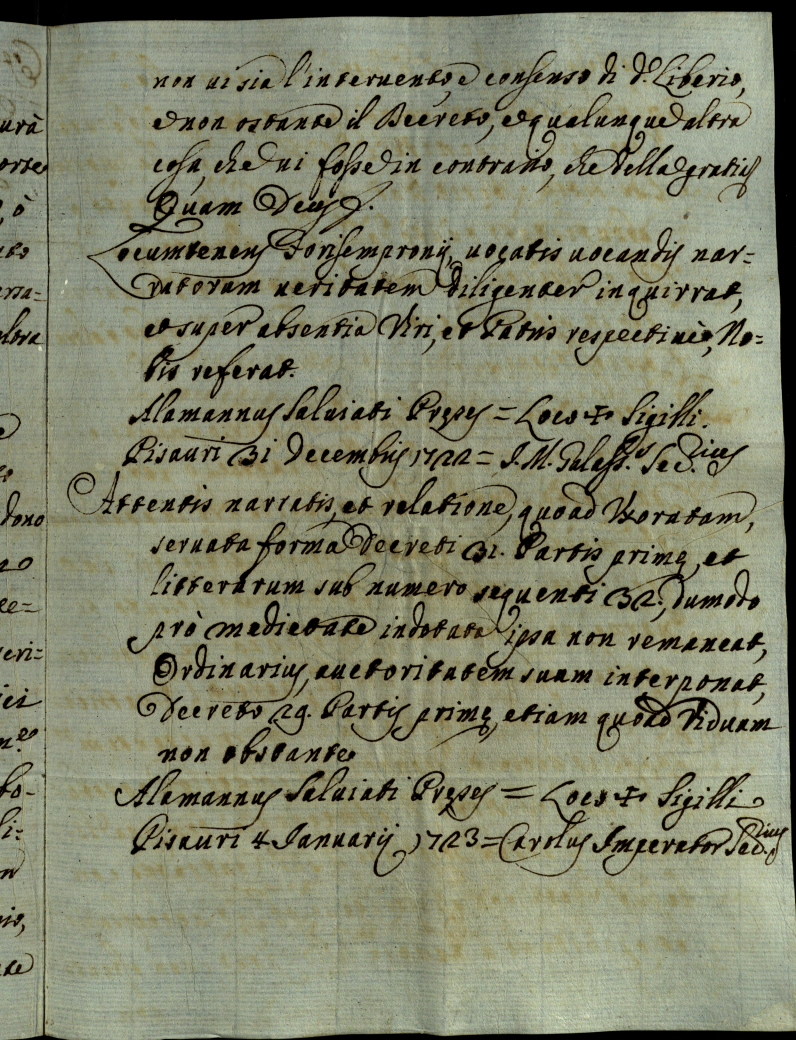 non ui sia l'interuento, e consenso di d.º Liberio,
e non ostante il Decreto, e qualunque altra
cosa, che ui fosse in contrario, che della gratia
Quam Deus
Locumtenens Forisempronij, uocatis uocandis nar=
ratorum ueritatem diligenter inquirrat,
et super absentia Viri, et Patris respectiuè, No=
bis referat.
Alamannus Saluiati Preses = Loco + Sigilli.
Pisauri 31 Decembris 1722 = I. M. Sec.rius
Attentis narratis, et relatione, quoad Uxoratam,
seruata forma Decreti 31. Partis prime, et
litterarum sub numero sequenti 32., dumodo
prò medietate indotata ipsa non remaneat,
Ordinarius, auctoritatem suam interponat,
Decreto 29. Partis prime, etiam quoad Viduam
non obstante
Alamannus Saluiati Preses = Loco + Sigilli
Pisauri 4 Januarij 1723 = Carolus Imperator Sec.rius
urà
orte
ò
nto
erra=
altra
dono
eri=
bo-
li=